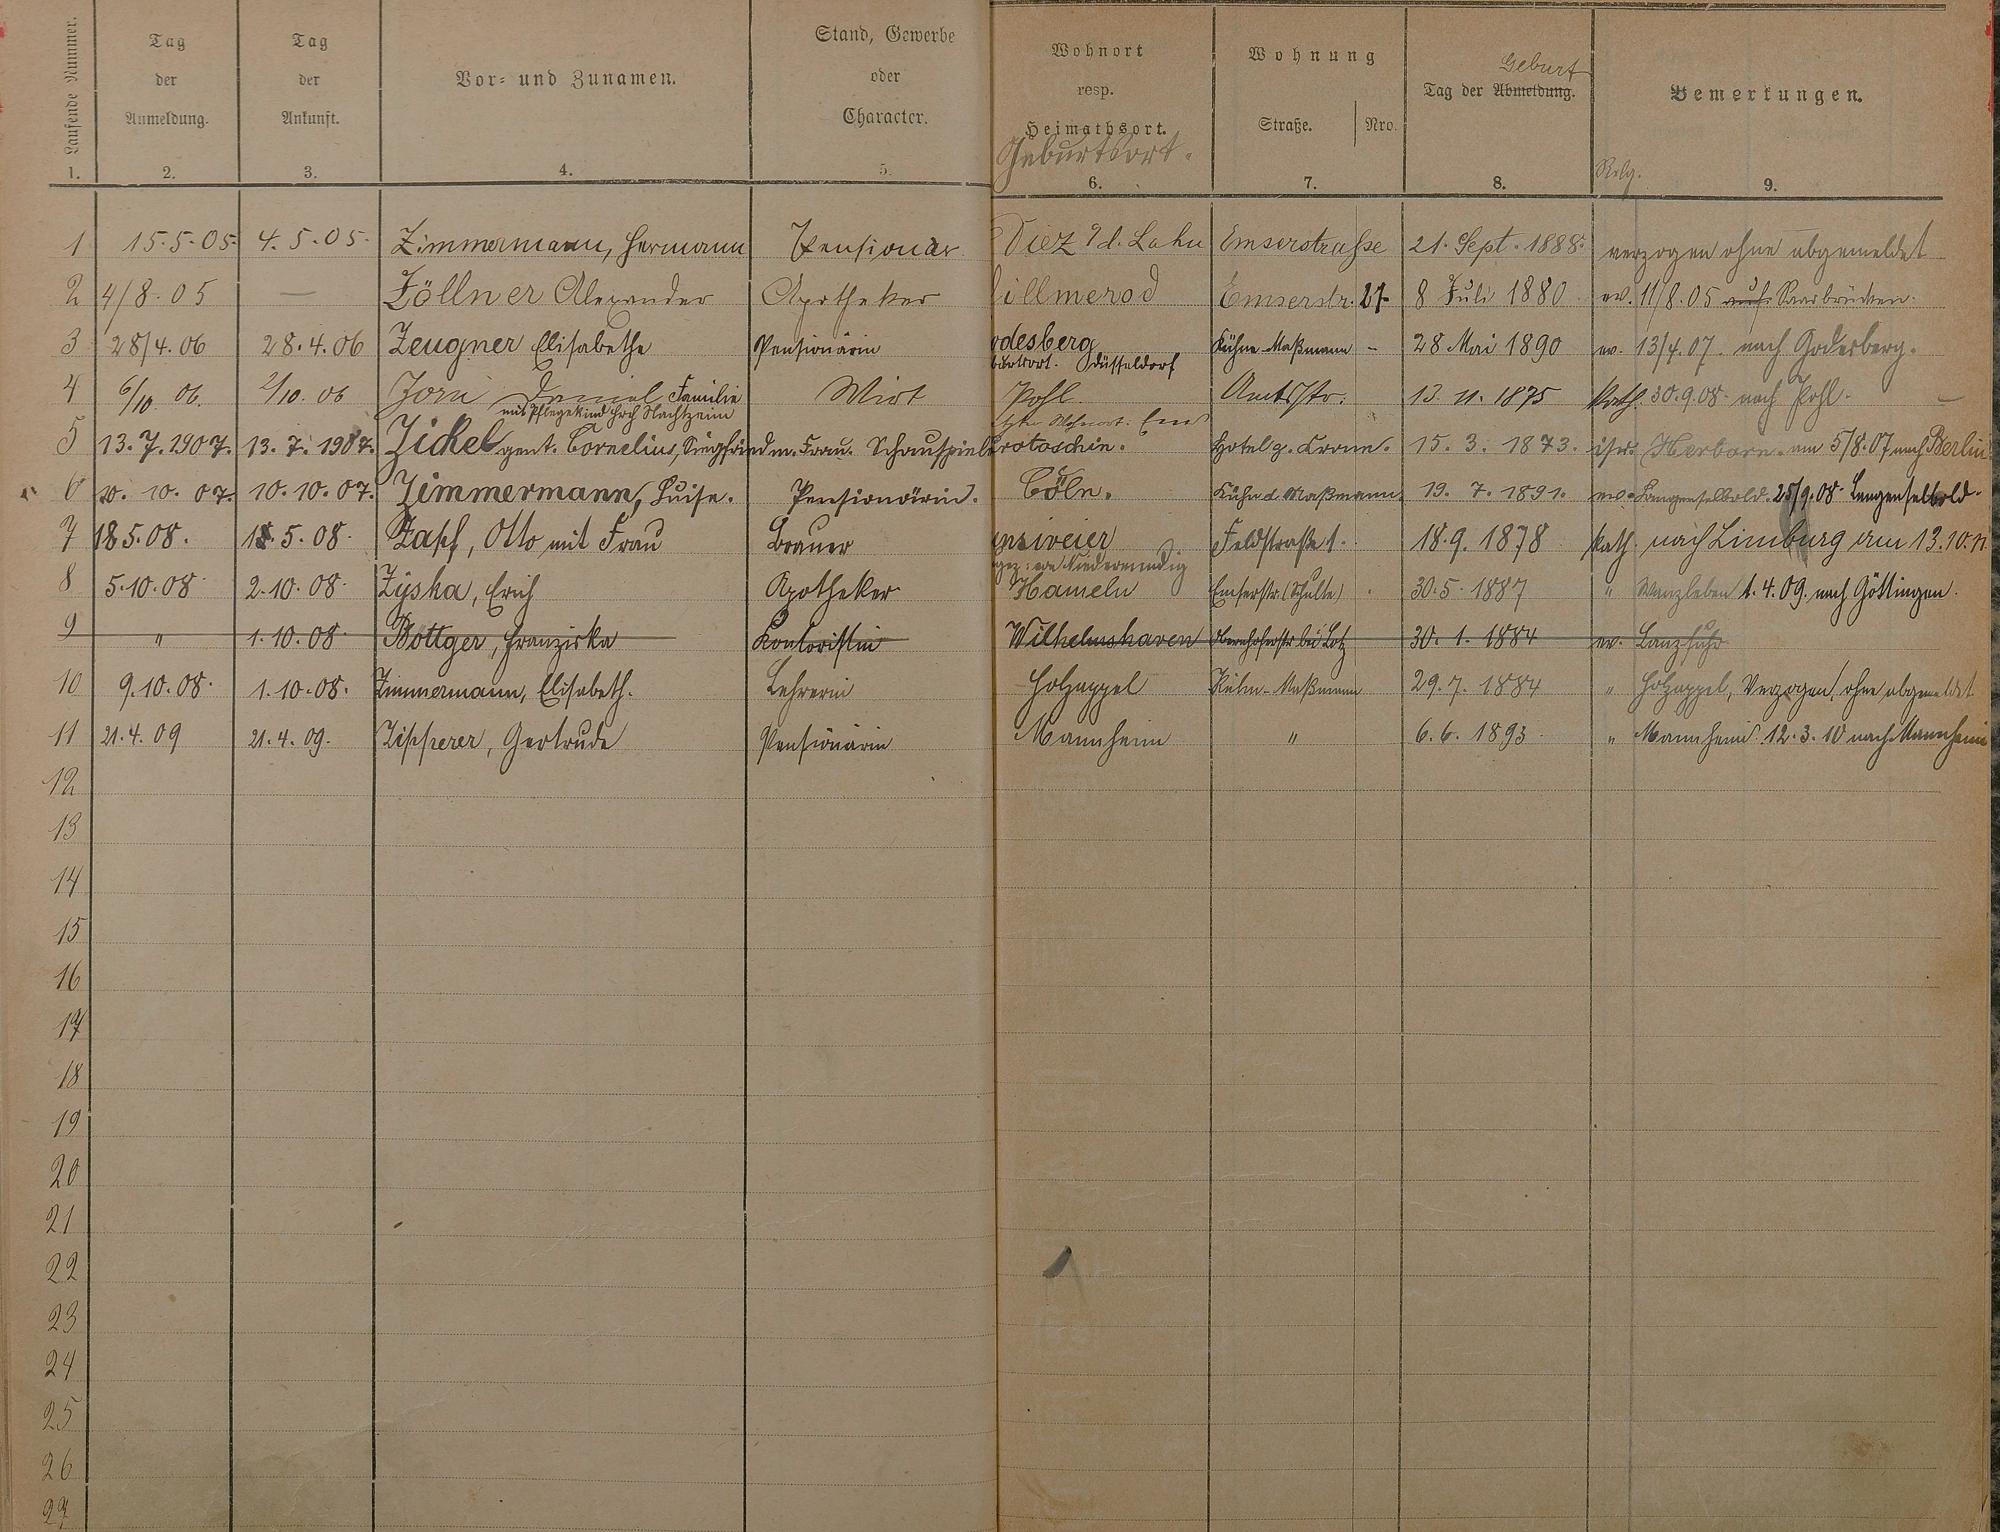 Laufende Nummer. Tag der Anmeldung. Tag der Ankunft. Vor- und Zunamen. Stand, Gewerbe oder Character. Wohnort resp. Heimathsort. Geburtsort. Wohnung Straße. Nro. Tag der Abmeldung. Geburt Bemerkungen. Relg.
1. 2. 3. 4. 5. 6. 7. 8. 9.
1 15.5.05. 4.5.05. Zimmermann, Hermann Pensionär Diez a/d. Lahn Emserstraße 21. Sept. 1888. verzogen ohne abgemeldet
2 4/8.05 — Zöllner Alexander Apotheker illmerod Emserstr. 27 8 Juli 1880 ev. 11/8.05 Saarbrücken.
3 28/4.06 28.4.06 Zeugner Elisabethe Pensionärin odesberg Kühne-Maßmann - 28 Mai 1890 ev. 13/4.07. nach Godesberg.
Düsseldorf
4 6/10.06. 2/10.06 Zorn Daniel Familie Wirt Pohl. Amtsstr. 13.11.1875 kath. 30.9.08. nach Pohl. —
mit Pflegekind letzter Wohnort: Ems
5 13.7.1907. 13.7.1907. Zickel gent. Cornelius, Siegfried m. Frau. Schauspiel rotoschin. Hotel z. Krone. 15.3.1873. isr. Herborn. am 5/8.07 nach Berlin
6 10.10.07. 10.10.07. Zimmermann, Luise. Pensionärin. Cöln. Kühne Maßmann. 19.7.1891. ev. Langenselbold. 25/9.08. Langenselbold.
7 18.5.08. 18.5.08. Zapf, Otto mit Frau Brauer nsweier Feldstraße 1. 18.9.1878 kath. nach Limburg am 13.10.11
von Niedermendig
8 5.10.08. 2.10.08. Zyska, Erich Apotheker Hameln Emserstr. (Schulte) 30.5.1887 " Wanzleben 1.4.09. nach Göttingen.
9 " 1.10.08. Böttger, Franziska Kontoristin Wilhelmshaven Oberhoferstr. bei Lotz 30.1.1884 ev. Langfuhr
10 9.10.08. 1.10.08. Zimmermann, Elisabeth. Lehrerin Holzappel Kühn-Maßmann 29.7.1884 " Holzappel, Verzogen, ohne abgemeldet
11 21.4.09 21.4.09. Zipperer, Gertrude Pensionärin Mannheim " 6.6.1893. " Mannheim. 12.3.10 nach Mannheim
12
13
14
15
16
17
18
19
20
21
22
23
24
25
26
27